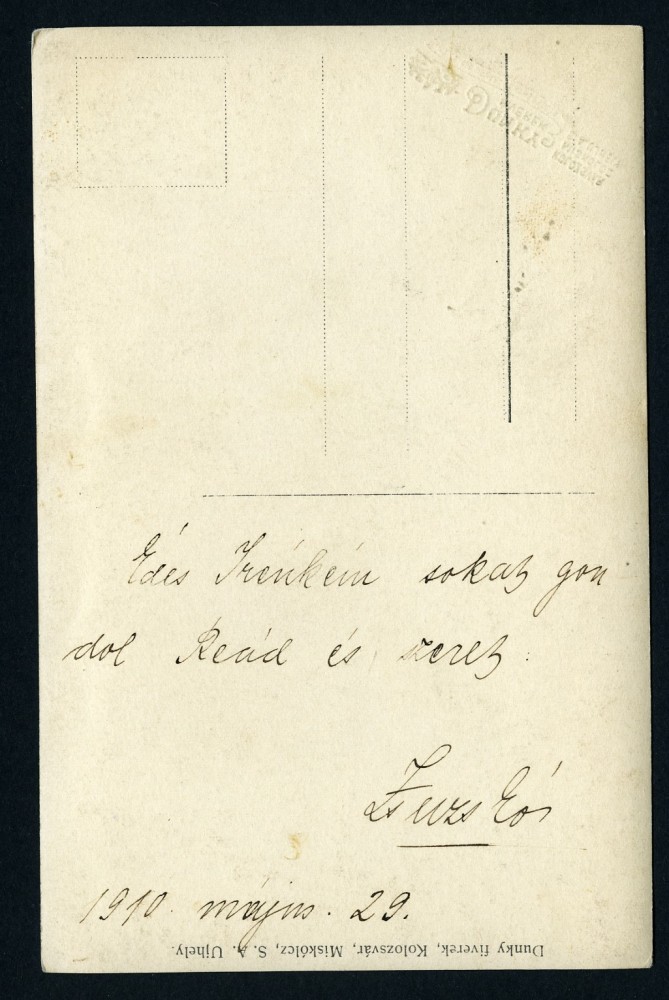 Dunky
Édes Irénkém sokat gon
dol Reád és szeret:
1910. május. 29.
Dunky fiverek, Kolozsvár, Miskólcz, S. A. Ujhely.